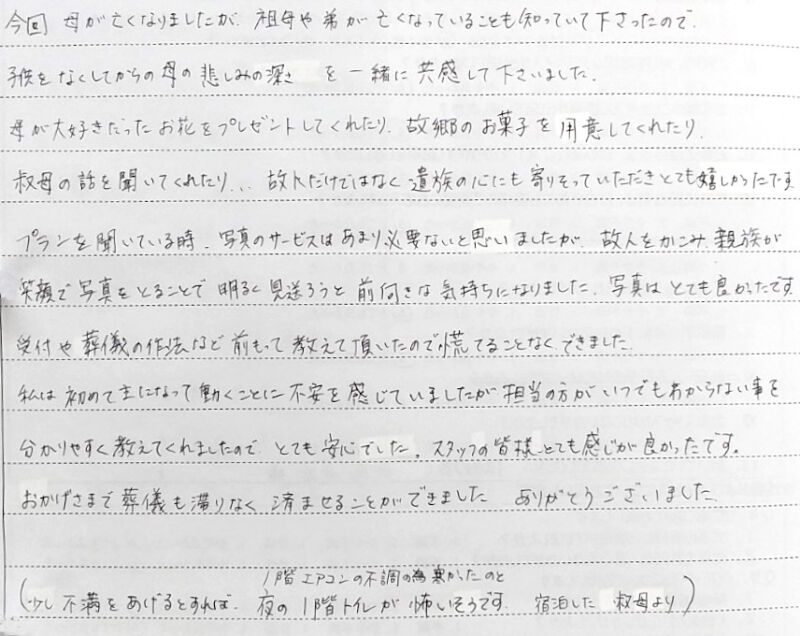 今回 母が亡くなりましたが、祖母や弟が亡くなっていることも知っていて下さったので、
子供をなくしてからの母の悲しみの深さ を一緒に共感して下さいました。
母が大好きだったお花をプレゼントしてくれたり、故郷のお菓子を用意してくれたり、
叔母の話を聞いてくれたり... 故人だけではなく遺族の心にも寄りそっていただきとても嬉しかったです
プランを聞いている時、写真のサービスはあまり必要ないと思いましたが、故人をかこみ、親族が
笑顔で写真をとることで明るく見送ろうと前向きな気持ちになりました。写真はとても良かったです
受付や葬儀の作法など前もって教えて頂いたので慌てることなくできました。
私は初めて主になって動くことに不安を感じていましたが担当の方がいつでもわからない事を
分かりやすく教えてくれましたので、とても安心でした。スタッフの皆様とても感じが良かったです。
おかげさまで葬儀も滞りなく済ませることができました ありがとうございました
1階エアコンの不調の為寒かったのと
(少し不満をあげるとすれば、夜の1階トイレが怖いそうです 宿泊した 叔母より)